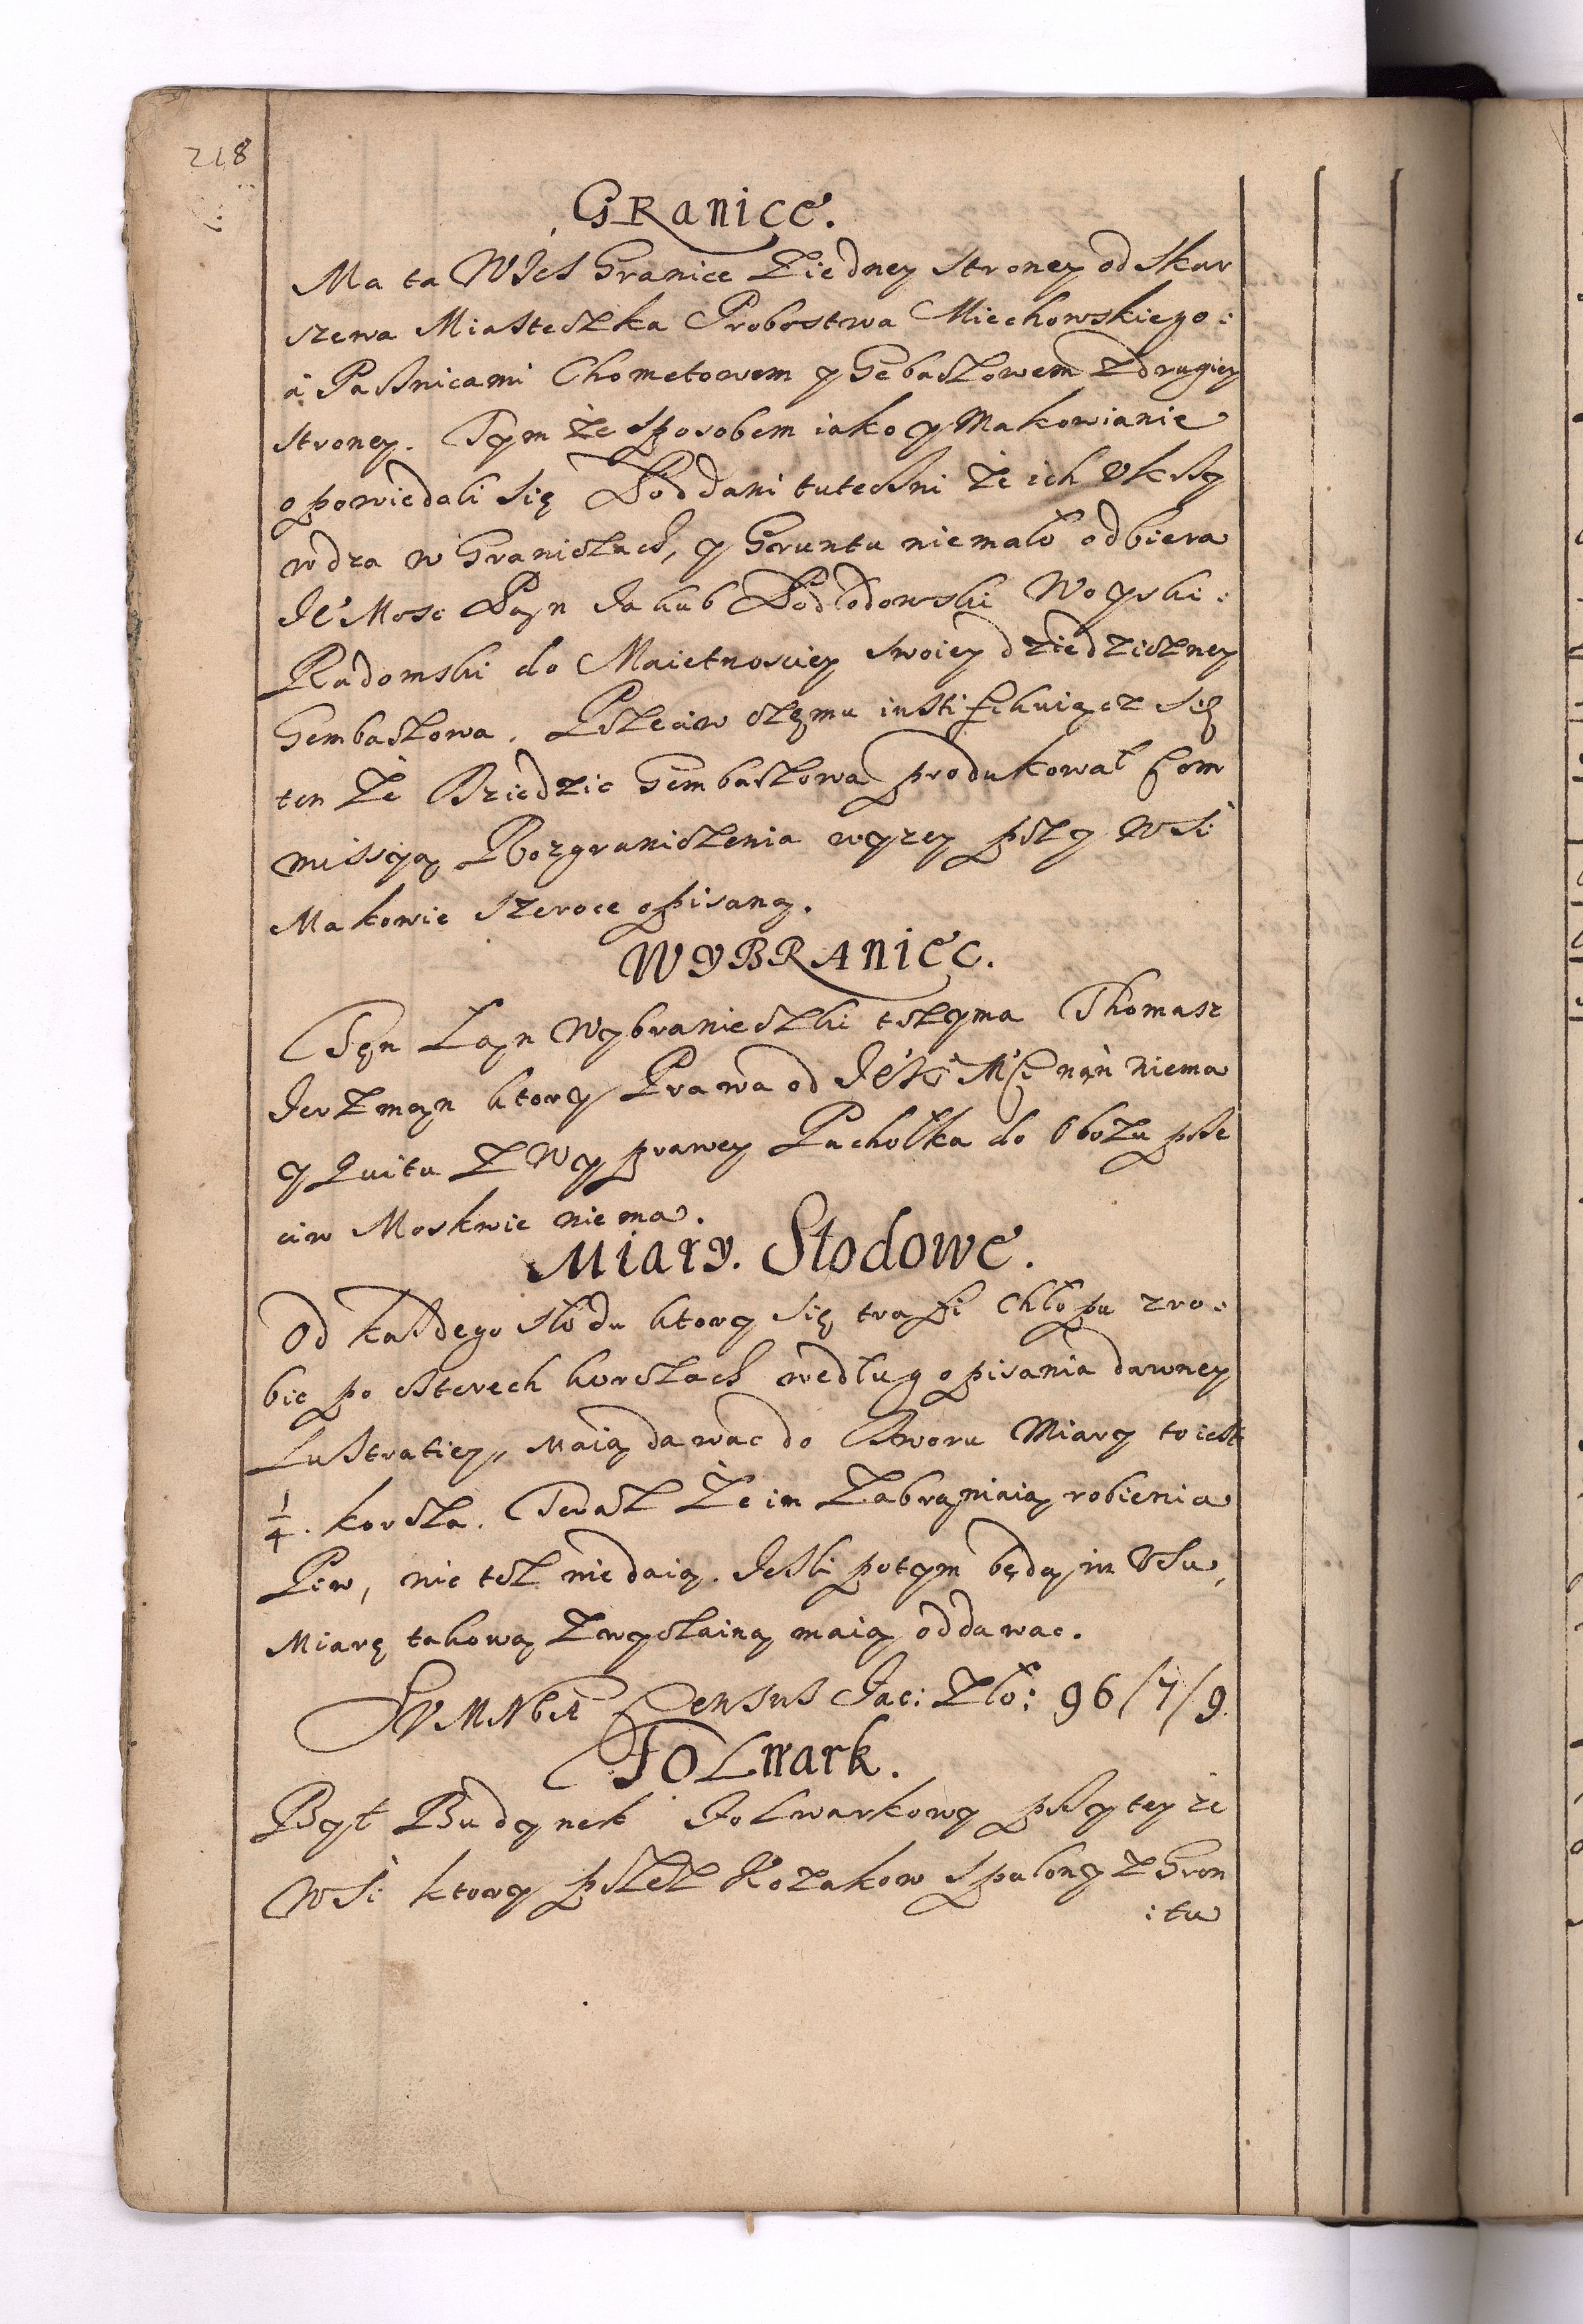 218
GRanice.
Ma ta Wies Granice Ziedney stroney od Skar
szewa Miasteczka Probostwa Miechowskiego:
a Pasnicami Chometowem y Gębaczowem Zdrugiey
stroney. Tym że sposobem iako y Makowianie
opowiedali się Poddani tuteszni że ich Uksy
wdza w Graniczach, y Gruntu niemało odbiera
Je Mosc Pan Jakub Podlodowski Woyski:
Radomski do Maietnosciey swoiey dziedziczney
Gembaczowa. Przeciw czemu iustifikuiącz się
ten że Dziedzic Gembaczowa produkował Com
missyą Rozgraniczenia wyzey przy Wsi
Makowie szeroce opisaną.
WYBRANIEC.
Ten Łan Wybraniecki trzyma Thomasz
Jerzman ktory Prawa od JeK Mci nań niema
y Quitu Z Wyprawey Pachołka do Obozu prze
ciw Moskwie niema.
Miary. Słodowe.
Od kazdego słodu ktory się trafi Chłopu zro:
bic po czterech korczach według opisania dawney
Lustratiey, Maią dawac do Dworu Miary to iest
1/4. korcza. Teraz Że im Zabraniaią robienia
Piw, nie tez nie daią. Jesli potym będą in Usu,
Miarę takową Zwyczainą maią oddawac.
SVMMA Census Fac: Zło: 96/7/9.
FOLwark.
Był Budynek Folwarkowy przy tey że
Wsi ktory przez Kozakow spalony Z Gron
:tu